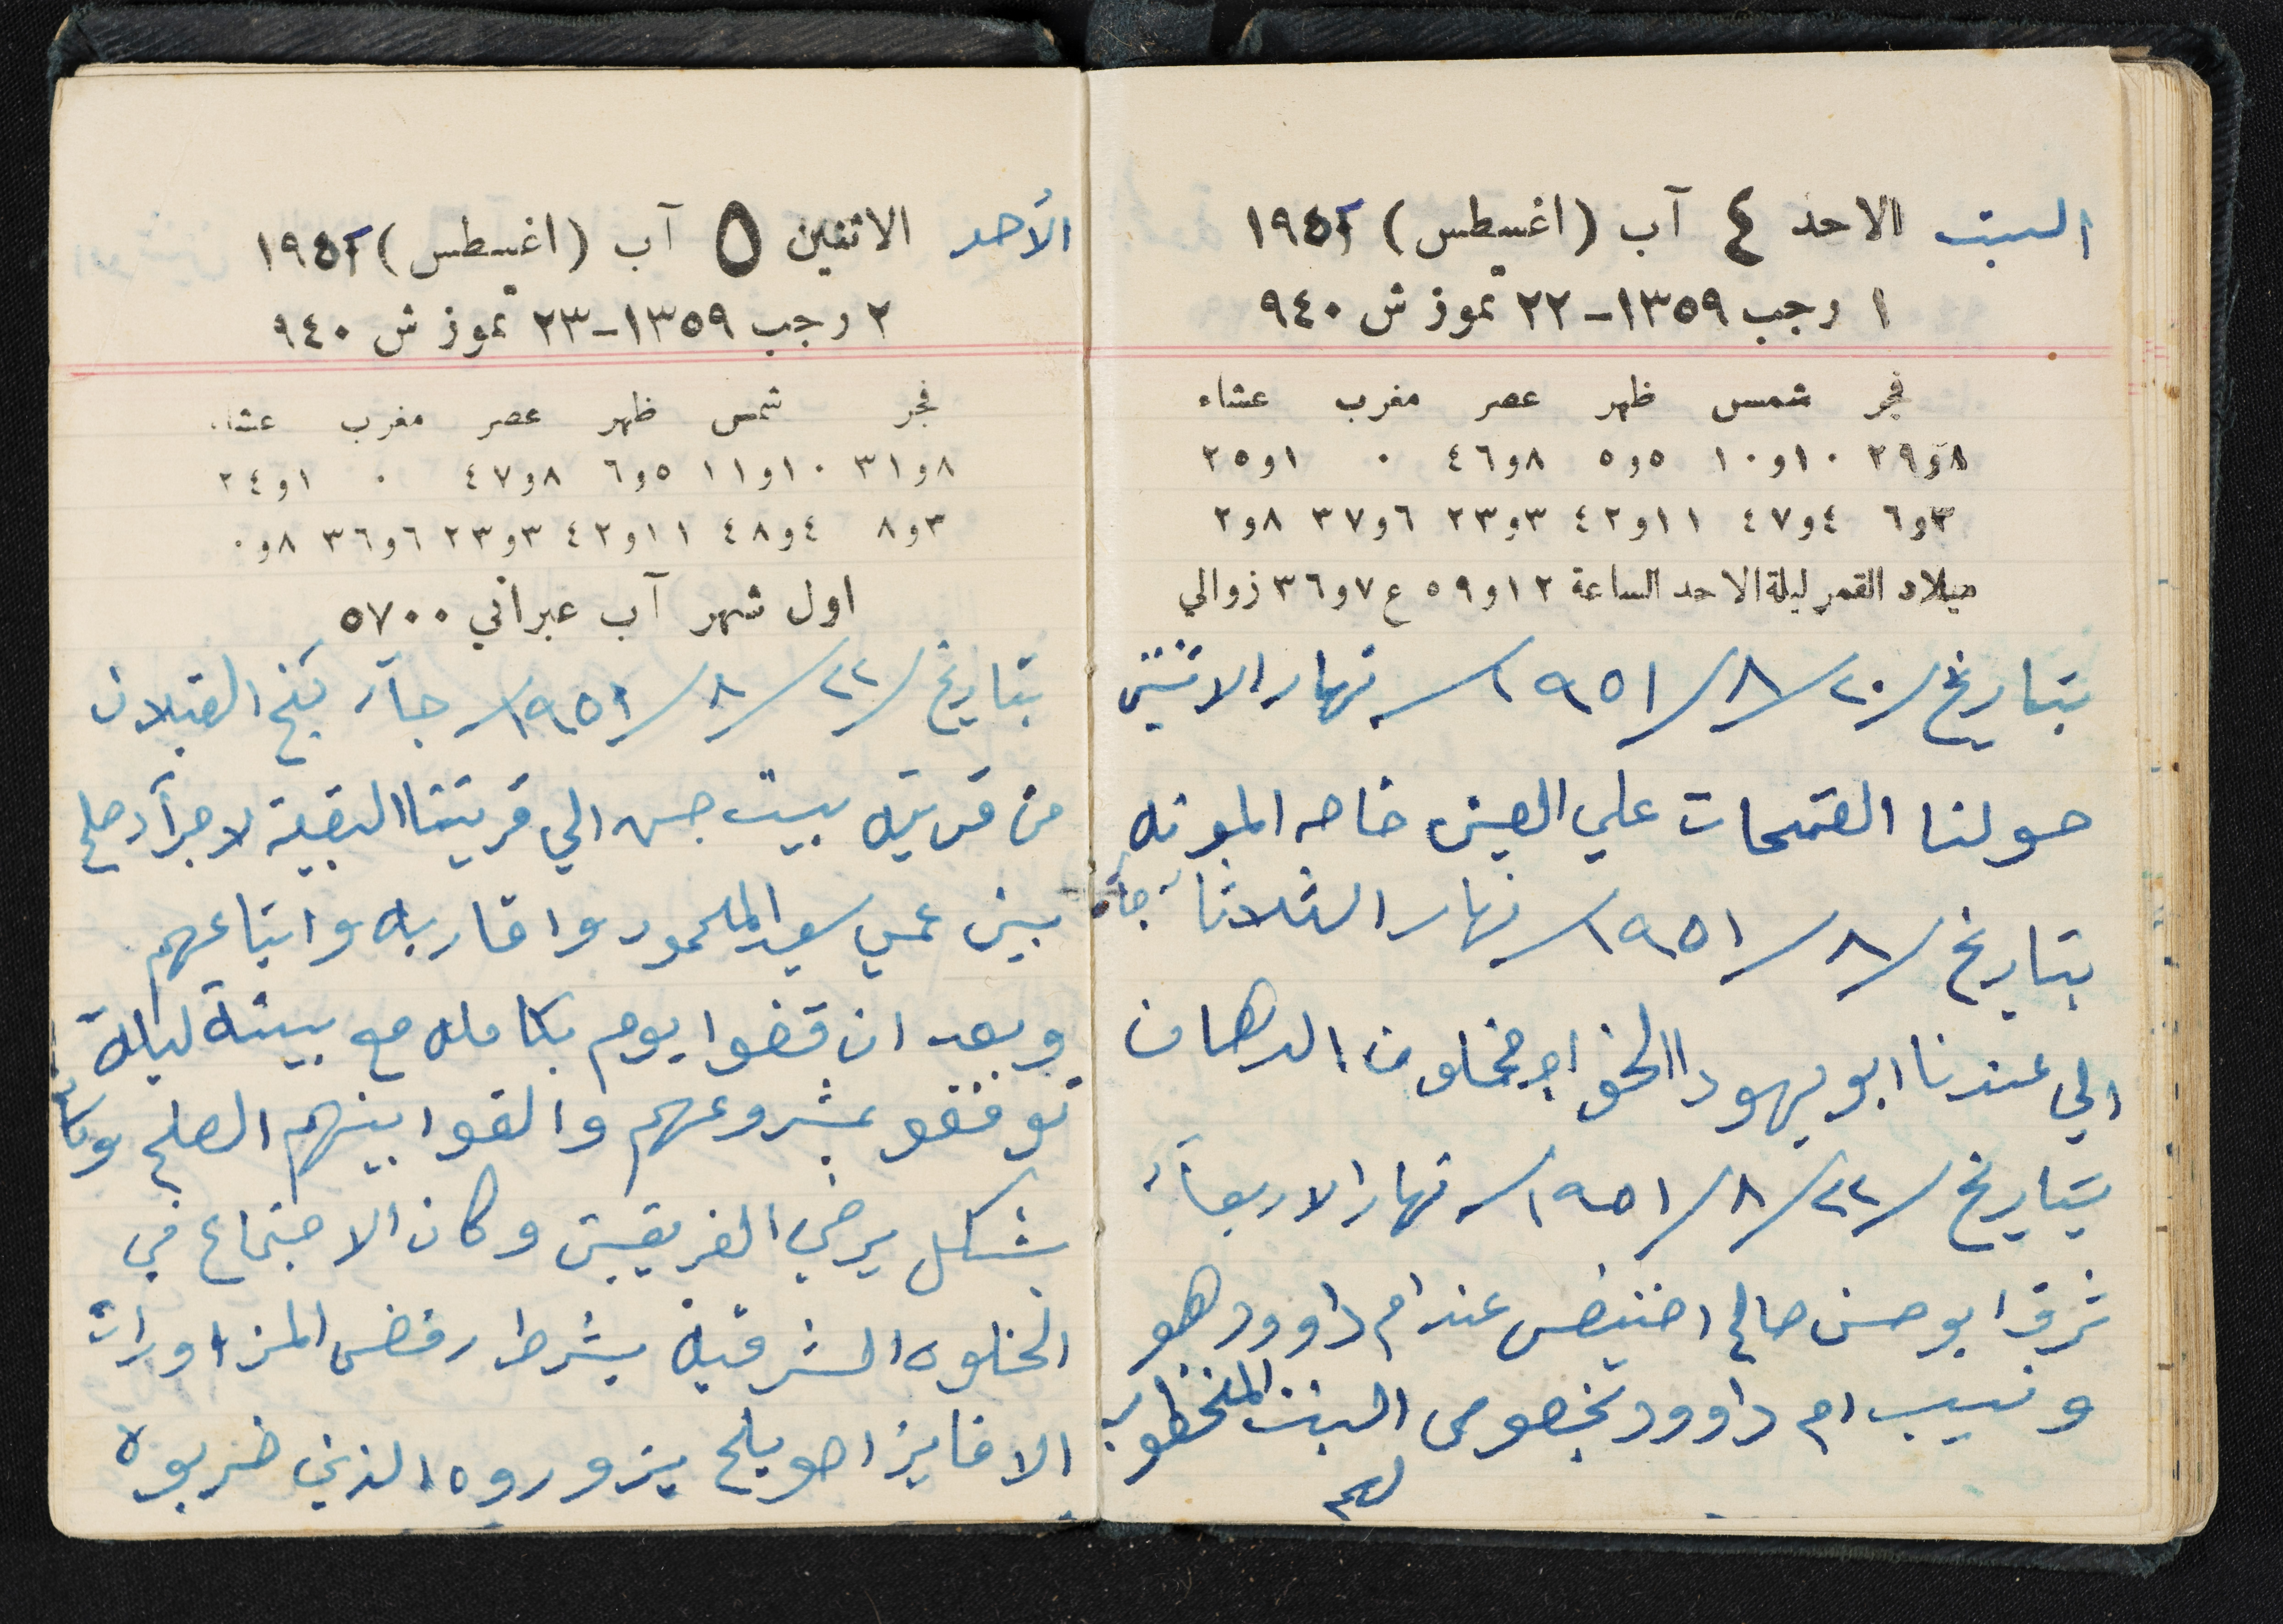 السبت الاحد ٤ آب (اغسطس) ١٩٥١
١ رجب ١٣٥٩-٢٢ تموز ش ٩٤٠
فجر شمس ظهر عصر مغرب عشاء
٨و٢٩ ١٠و١٠ ٥و٥ ٨و٤٦ ٠ ١و٢٥
٣و٦ ٤و٤٧ ١١و٤٢ ٣و٢٣ ٦و٣٧ ٨و٢
ميلاد القمر ليلة الاحد الساعة ١٢و٥٩ ع ٧و٣٦ زوالي
بتاريخ ٢٠/٨/١٩٥١ نهار الاثنين
حولنا القمحات علي العين خاصه المونه
بتاريخ /٨/١٩٥١ نهار الثلاثاء جاء
الي عندنا ابو يهودا الخواجه مخلوف الدهان
بتاريخ ٢٢/٨/١٩٥١ نهار الاربعاء
شرق ابو حسن صالح اخنيفس عند ام داوود هو
ونسيب ام داوود بخصوص البنت المخطوبه
لهم
الأحد الاثنين ٥ آب (اغسطس) ١٩٥١
٢ رجب ١٣٥٩-٢٣ تموز ش ٩٤٠
فجر شمس ظهر عصر مغرب عشاء
٨و٣١ ١٠و١١ ٥و٦ ٨و٤٧ ٠ ١و٢٤
٣و٨ ٤و٤٨ ١١و٤٢ ٣و٢٣ ٦و٣٦ ٨و٠
اول شهر آب عبراني ٥٧٠٠
بتاريخ ٢٢/٨/١٩٥١ جاء القبلان
من قريه بيت جن الي قريتنا البقيعة لاجراء صلح
بين عمي سعيد المحمود واقاربه واتباعهم
وبعد ان قضوا يوم بكامله مع بيتة ليلة
توفقو بمشروعهم والقوا بينهم الصلح وكان
بشكل يرضي الفريقين وكان الاجتماع في
الخلوه الشرقية بشرط رفض المزاورات
الا فايز اصويلح يزوروه الذي ضربوه